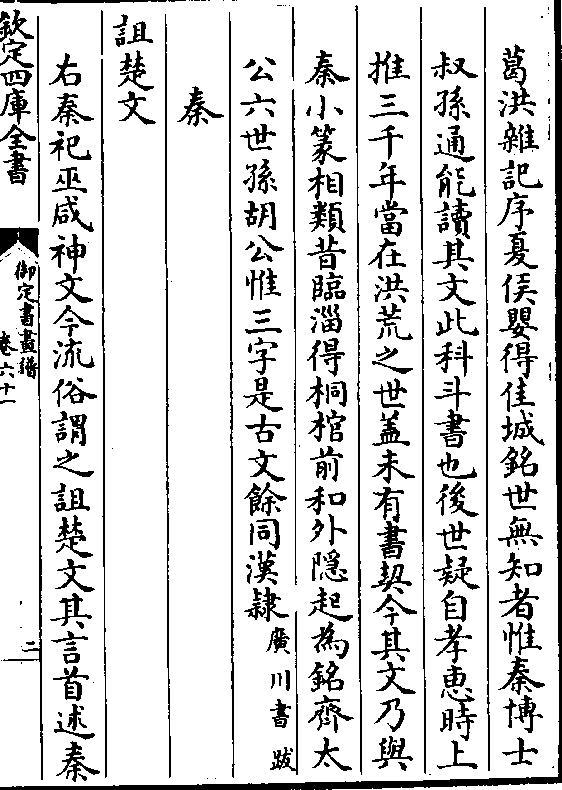 葛洪雜記序夏侯嬰得佳城銘世無知者惟秦博士
叔孫通能讀其文此科斗書也後世疑自孝惠時上
推三千年當在洪荒之世蓋未有書契今其文乃與
秦小篆相類昔臨淄得桐棺前和外隱起為銘齊太
公六世孫胡公惟三字是古文餘同漢隸廣川書跋
秦
詛楚文
右秦祀巫咸神文今流俗謂之詛楚文其言首述秦
欽定四庫全書
御定書畫譜
卷六十一
二